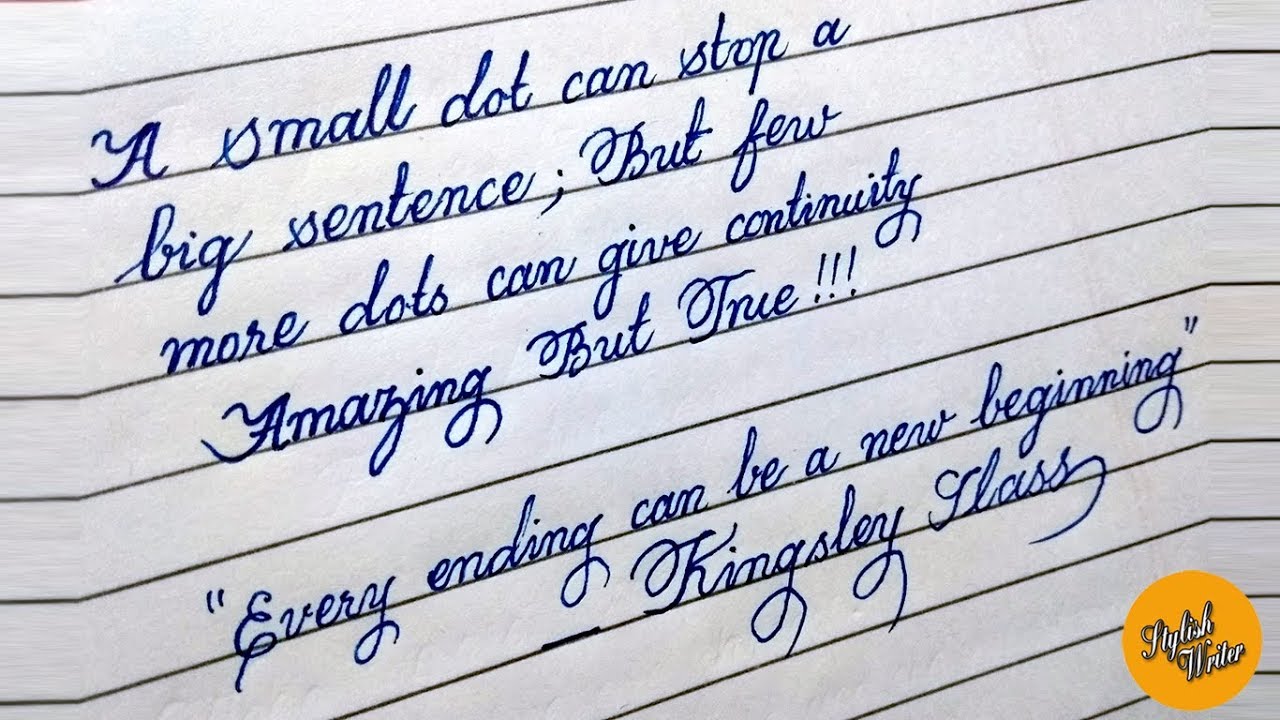 A small dot can stop a
big sentence; But few
more dots can give continuity
Amazing But True!!!
"Every ending can be a new beginning"
— Kingsley
Stylish
Writer